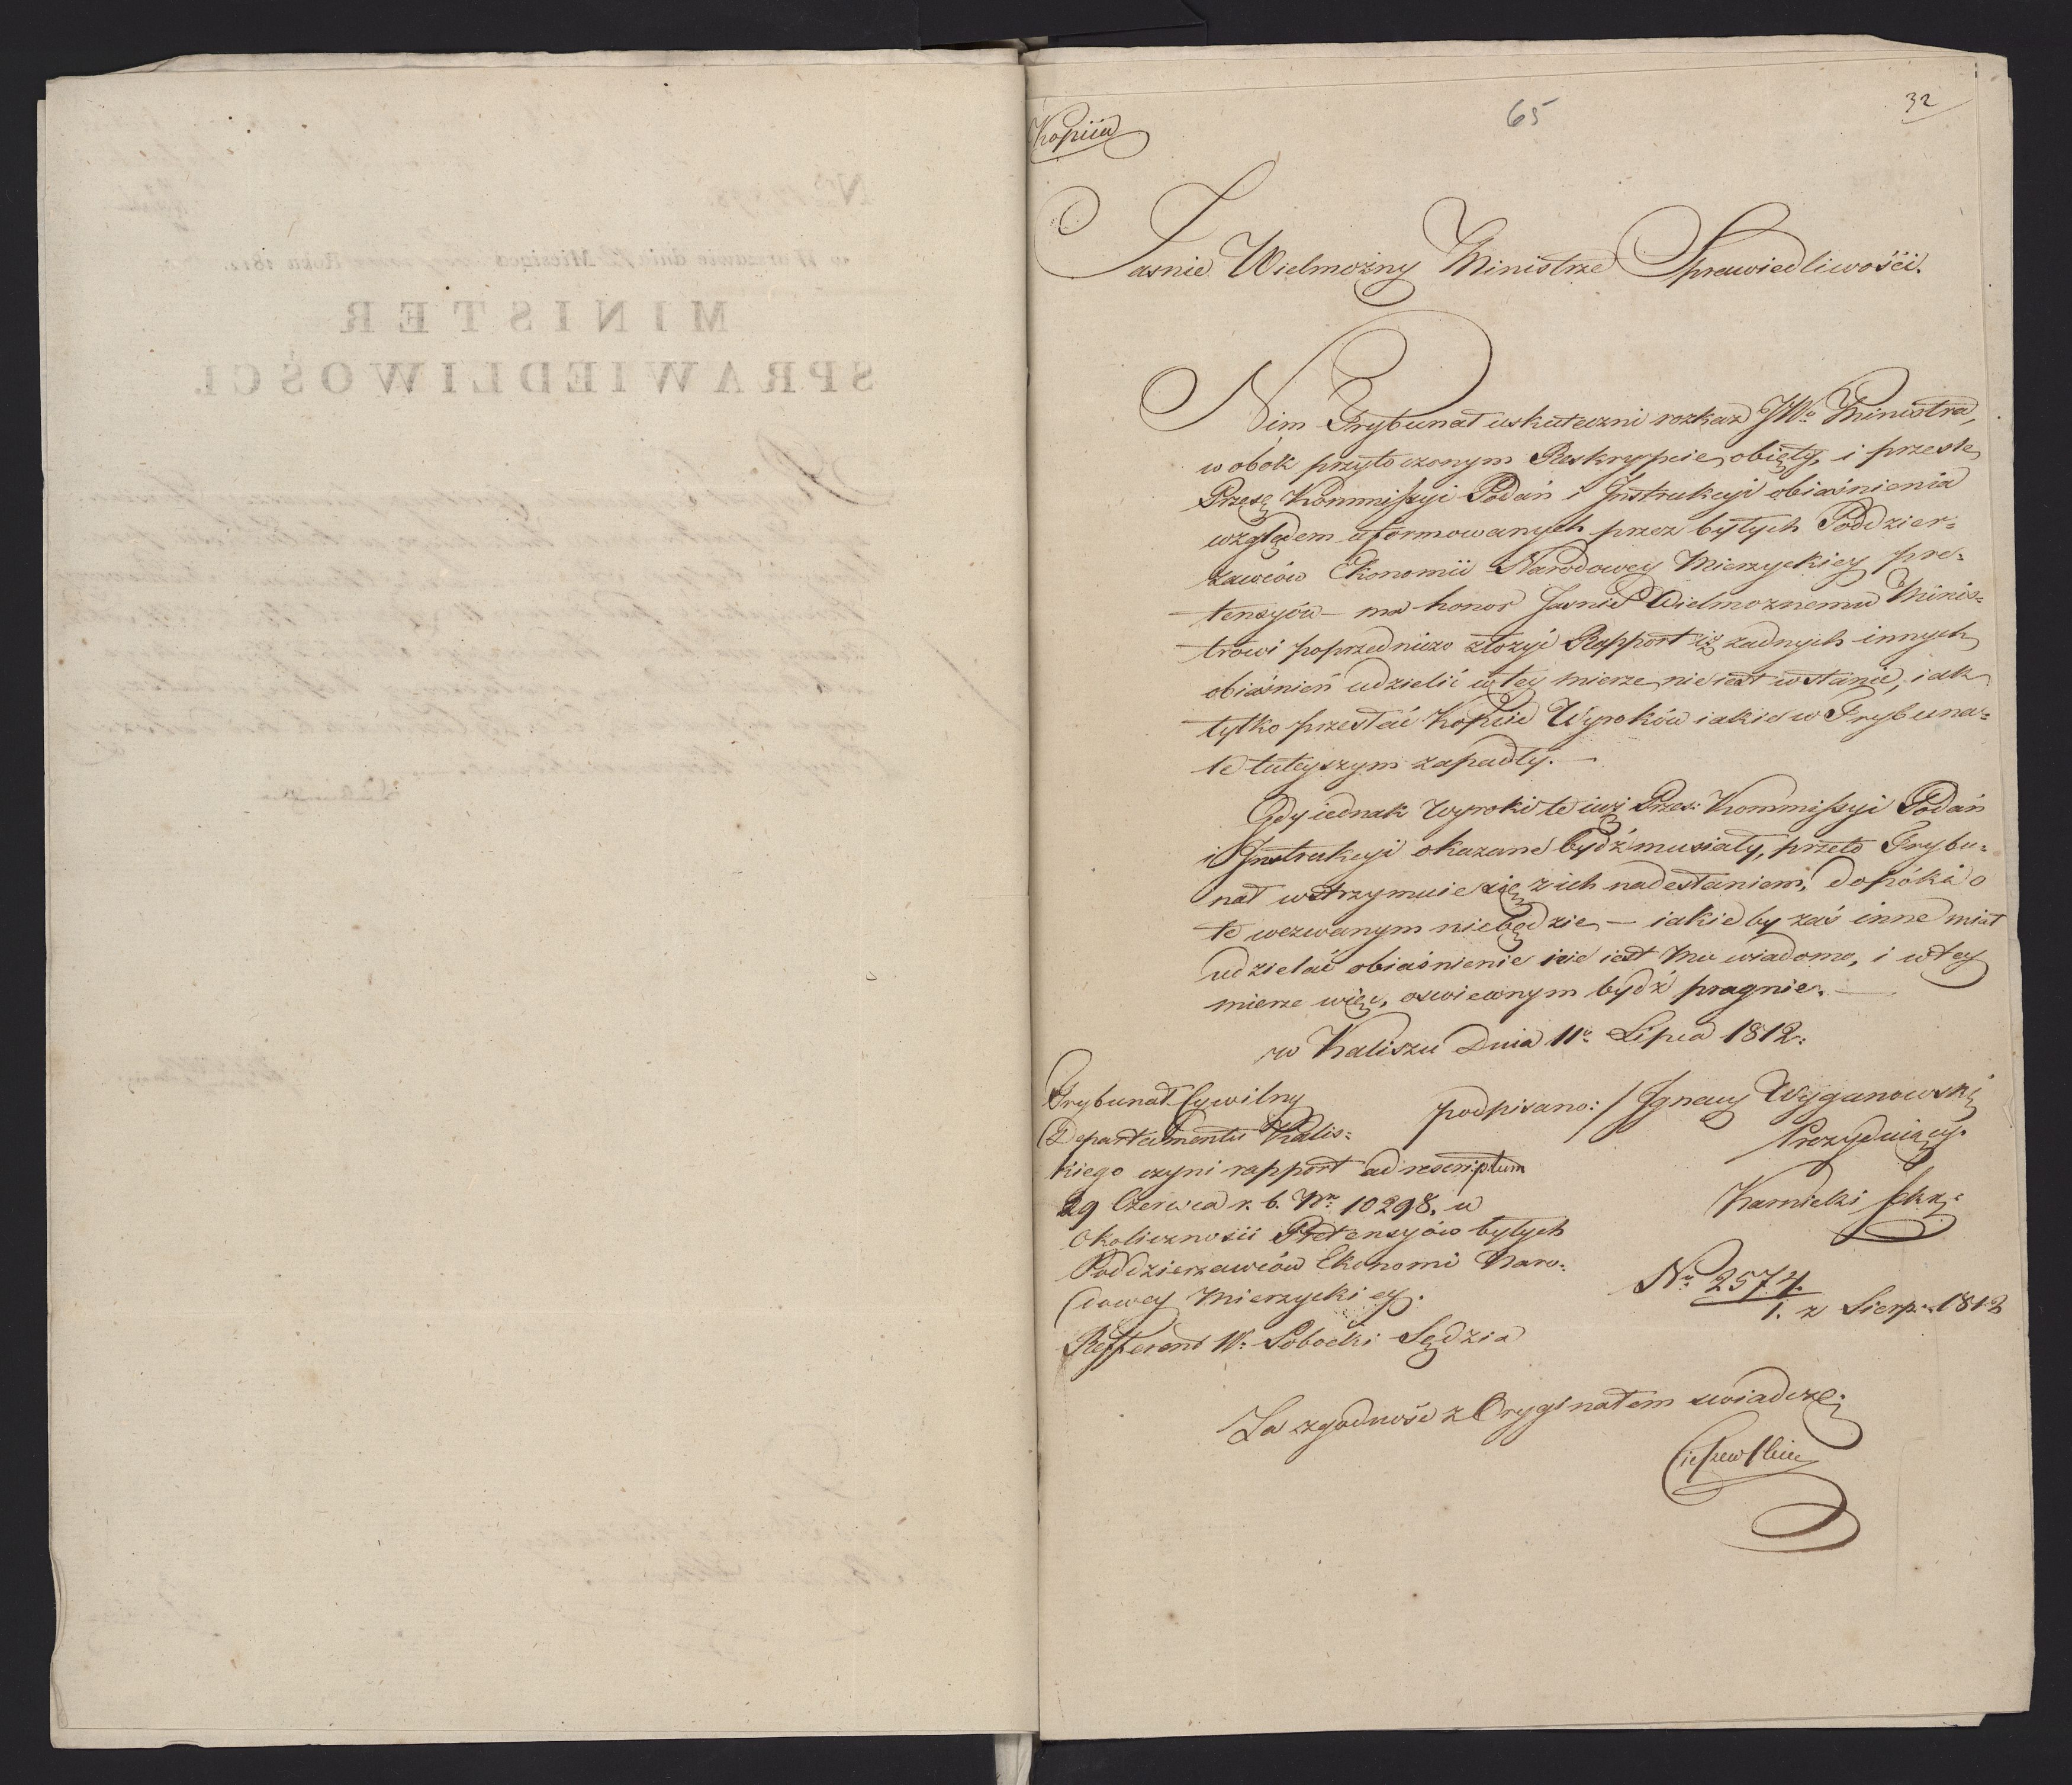 65
32
Kopiia
Jasnie Wielmożny Ministrze Sprawiedliwości.
Nim Trybunał uskuteczni rozkaz JWo Ministra,
w obok przytoczonym Reskrypcie obięty, i prześle
Prześ: Kommissyi Podań i Instrukcyi obiaśnienia
względem uformowanych przez byłych Poddzier=
zawców Ekonomii Narodowey Mierzyckiey pre=
tensyów — ma honor Jasnie Wielmoznemu Minis=
trowi poprzedniczo złozyć Rapport iż zadnych innych
obiaśnień udzielić w tey mierze nie iest wstanie, iak
tylko przesłać Kopiie Wyroków iakie w Trybuna=
le tuteyszym zapadły. —
Gdy iednak Wyroki te iuż Prześ: Kommissyi Podań
i Instrukcyi okazane bydź musiały, przeto Trybu=
nał wstrzymuie się z ich nadesłaniem, dopóki o
te wezwanym niebędzie, — iakieby zaś inne miał
udzielać obiaśnienie nie iest Mu wiadomo, i w tey
mierze więc, oswieconym bydź pragnie. —
w Kaliszu Dnia 11o Lipca 1812.
Trybunał Cywilny
Departamentu Kalis=
kiego czyni rapport ad rescriptum
29 Czerwca r. b. Nr 10298. w
Okolicznosci Pretensyów byłych
Poddzierzawców Ekonomi Naro=
dowey Mierzyckiey.
Refferent W: Sobocki Sędzia
podpisano: / Ignacy Wyganowski
Prezyduiący.
Karnicki Sekr:
No 2574.
1. z Sierp: 1812
Za zgodność z Oryginałem swiadczę: